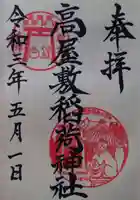 奉拝
高屋敷稲荷神社
令和三年五月一日